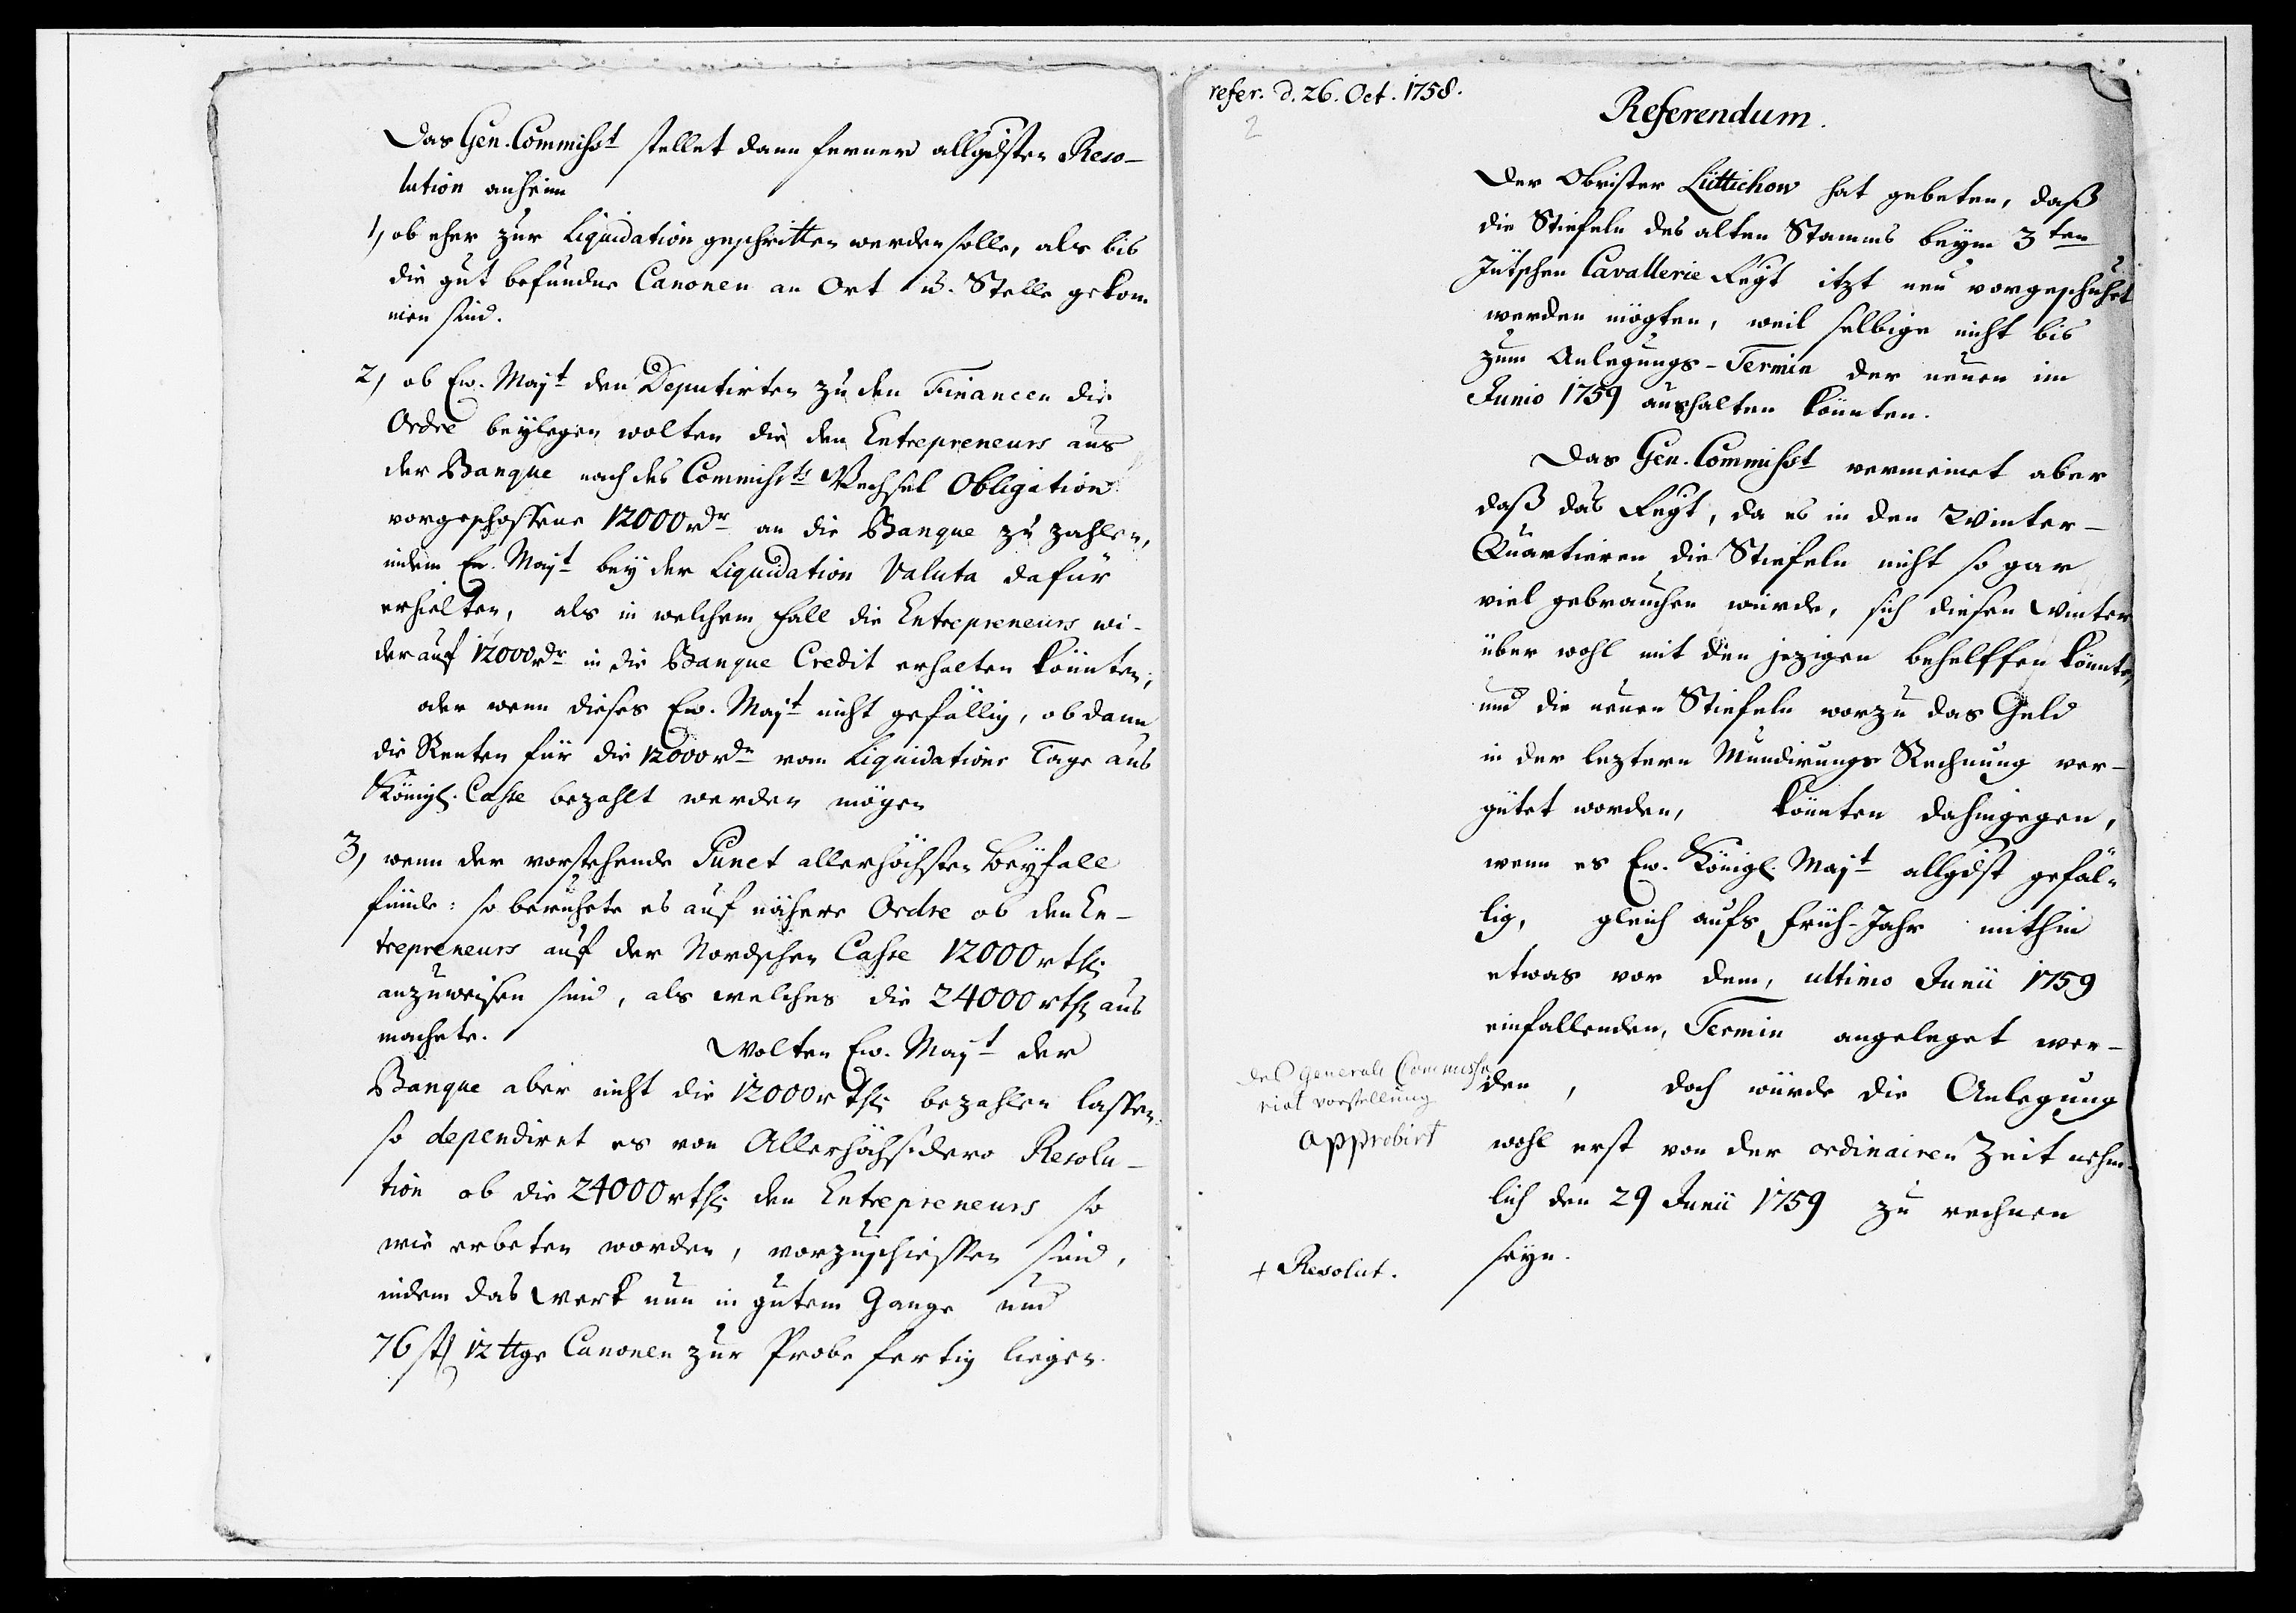 Das Gen. Commisst stellet dann ferner allgdster Reso-
lution anheim
1, ob eher zur Liquidation geschritten werden solle, als bis
die gut befundne Canonen an Ort u. Stelle gekom
men sind.
2, ob Ew. Majt den Deputirten zu den Financen die
Ordre beylegen wolten die den Entrepreneurs aus
der Banque nach des Commissts Wechsel Obligation
vorgeschossene 12000 rdr an die Banque zu zahlen,
indem Ew. Majt bey der Liquidation Valuta dafür
erhielten, als in welchem Fall die Entrepreneurs wi-
der auf 12000 rdr in die Banque Credit erhalten könnten;
oder wenn dieses Ew. Majt nicht gefällig, ob dann
die Renten für die 12000 rdr vom Liquidations Tage aus
Königl. Casse bezahlt werden mögen
3, wenn der vorstehende Punct allerhöchsten Beyfall
fünde: so beruhete es auf nähere Ordre ob den En-
trepreneurs auf der Nordschen Casse 12000 rthl
anzuweisen sind, als welches die 24000 rthl aus
machete. Wolten Ew. Majt der
Banque aber nicht die 12000 rthl bezahlen lassen,
so dependiret es von Allerhöchstdero Resolu-
tion ob die 24000 rthl den Entrepreneurs so
wie erbeten worden, vorzuschiessen sind,
indem das Werk nun in gutem Gange und
76 st 12 ttge Canonen zur Probe fertig liegen.
refer. d. 26. Oct. 1758.
2
Referendum.
Der Obrister Lüttichow hat gebeten, daß
die Stiefeln des alten Stamms beym 3ten
Jütschen Cavallerie Regt itzt neu vorgeschuhet
werden mögten, weil selbige nicht bis
zum Anlegungs-Termin der neuen im
Junio 1759 aushalten könnten.
Das Gen. Commisst vermeinet aber
daß das Regt, da es in den Winter-
Quartieren die Stiefeln nicht so gar
viel gebrauchen würde, sich diesen Winter
über wohl mit den jezigen behelffen könnte,
und die neuen Stiefeln worzu das Geld
in der leztern Mundirungs Rechnung ver-
gütet worden, könnten dahingegen,
wenn es Ew. Königl. Majt allgdst gefäl-
lig, gleich aufs Früh-Jahr mithin
etwas vor dem, ultimo Junii 1759
einfallenden, Termin angeleget wer-
den, doch würde die Anlegung
wohl erst von der ordinairen Zeit nehm-
lich den 29 Junii 1759 zu rechnen
seyn.
des Generals Commissa
riat vorstellung
approbirt
+ Resolut.